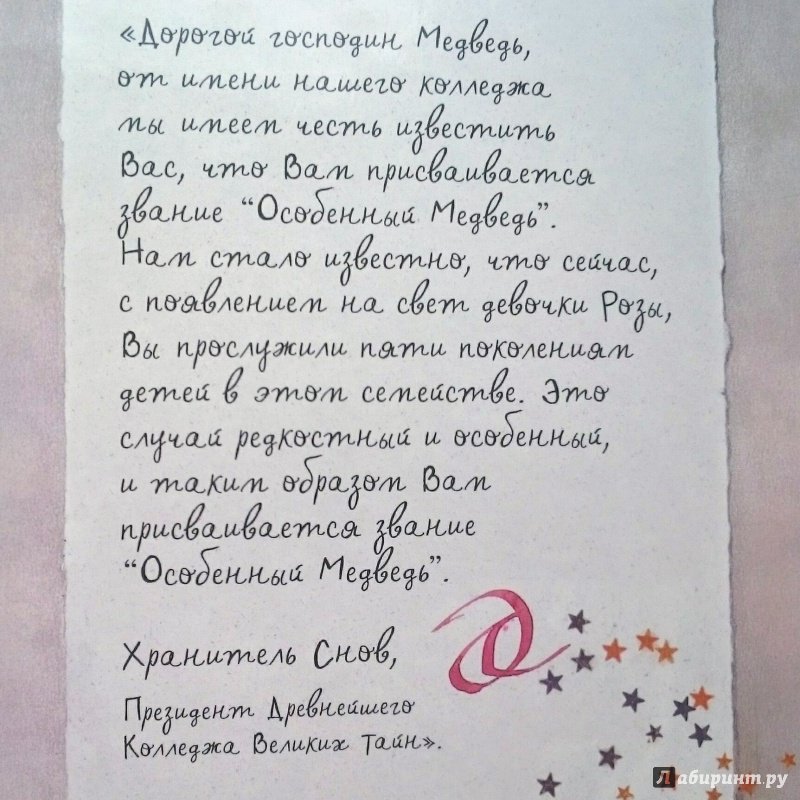 «Дорогой господин Медведь,
от имени нашего колледжа
мы имеем честь известить
Вас, что Вам присваивается
звание “Особенный Медведь”.
Нам стало известно, что сейчас,
с появлением на свет девочки Розы,
Вы прослужили пяти поколениям
детей в этом семействе. Это
случай редкостный и особенный,
и таким образом Вам
присваивается звание
“Особенный Медведь”.
Хранитель Снов,
Президент Древнейшего
Колледжа Великих Тайн».
Лабиринт.ру